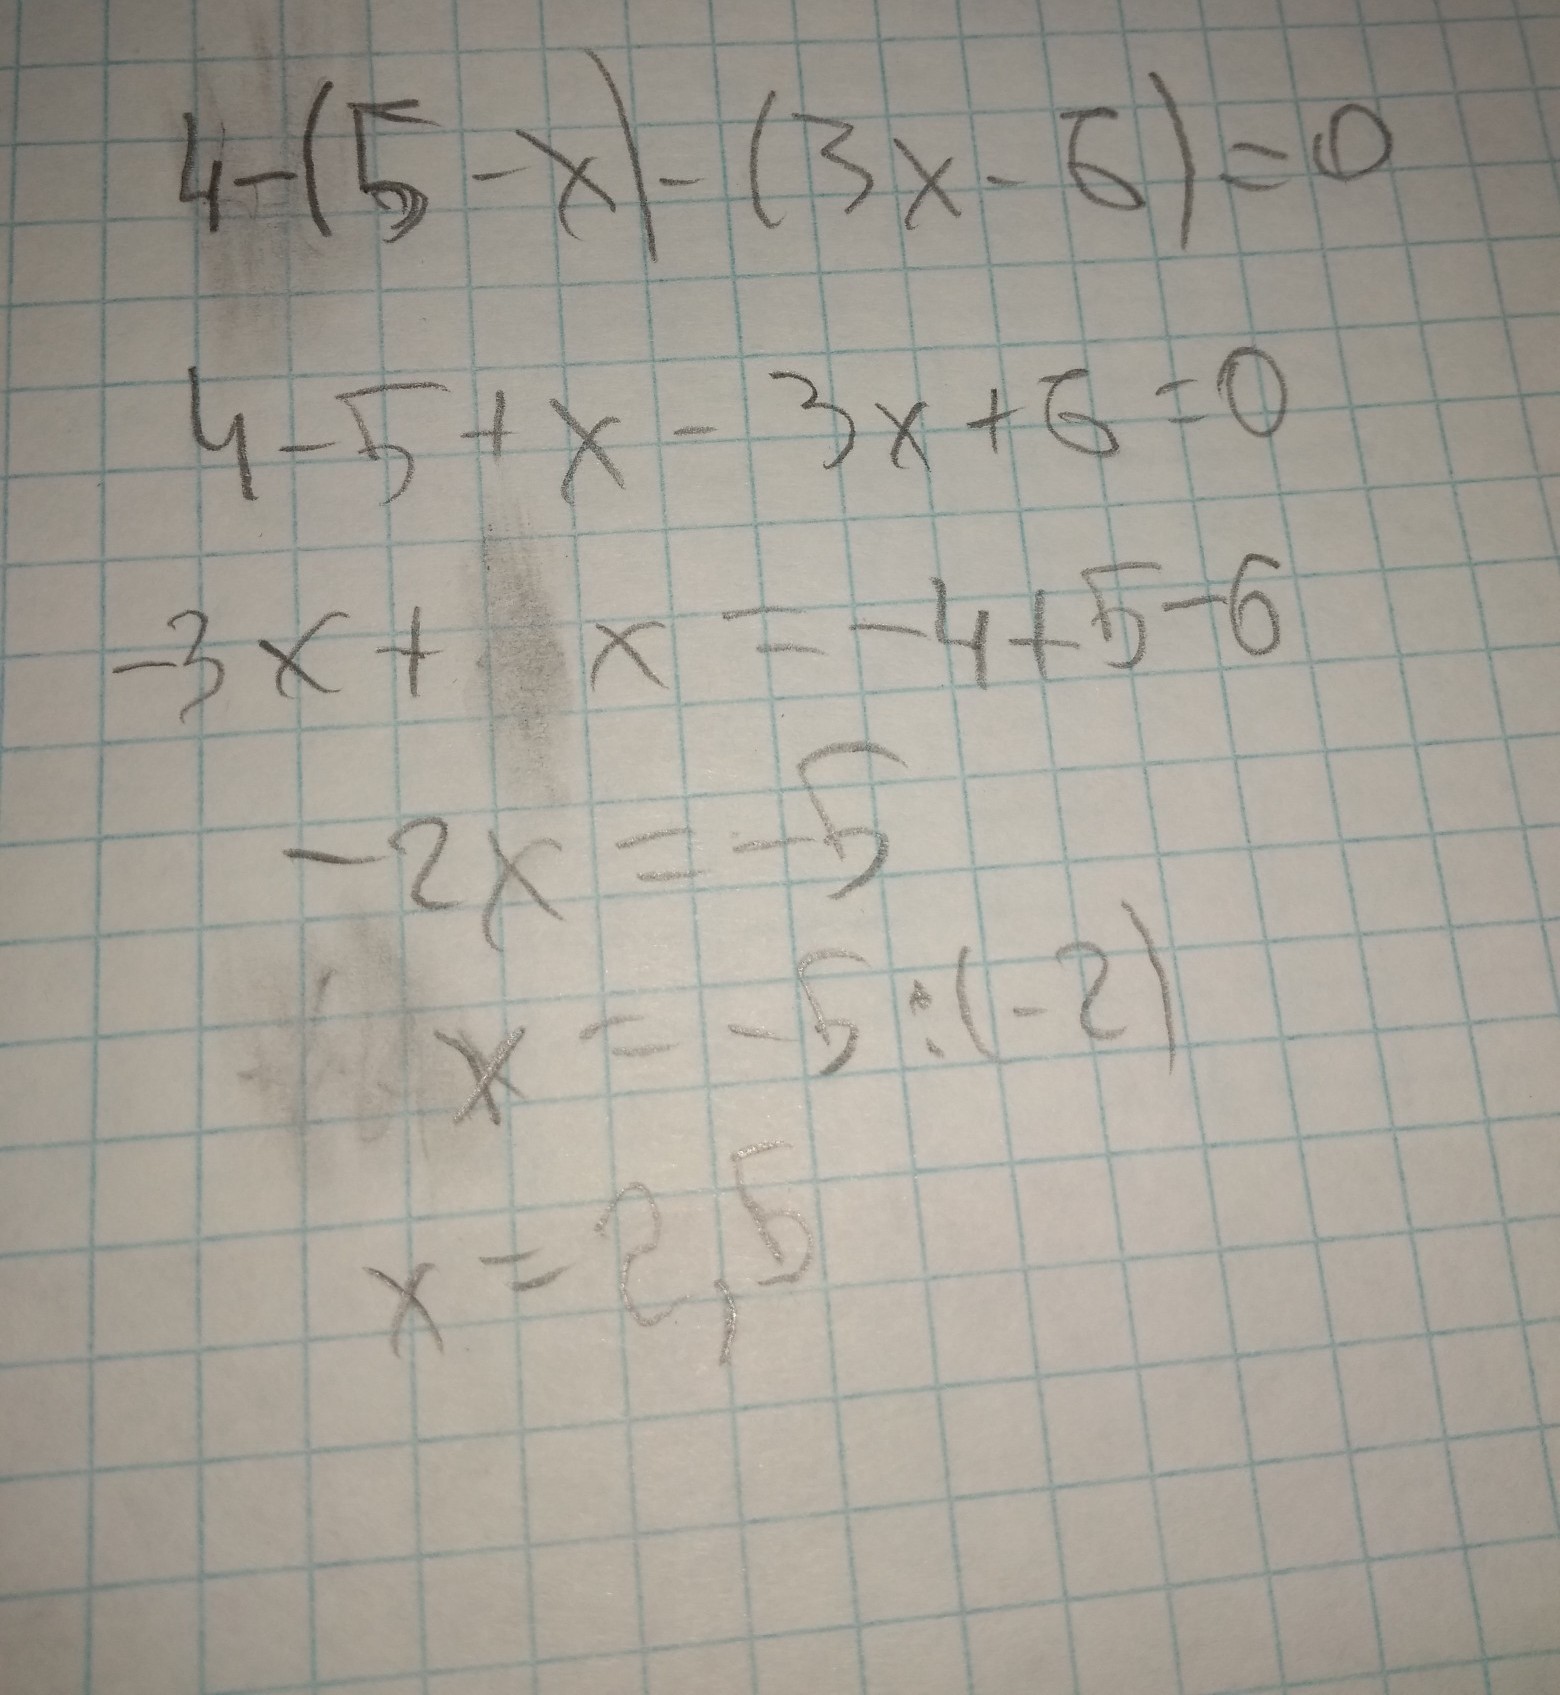 4-(5-x)-(3x-6)=0
4-5+x-3x+6=0
-3x+x=-4+5-6
-2x=-5
x=-5:(-2)
x=2,5